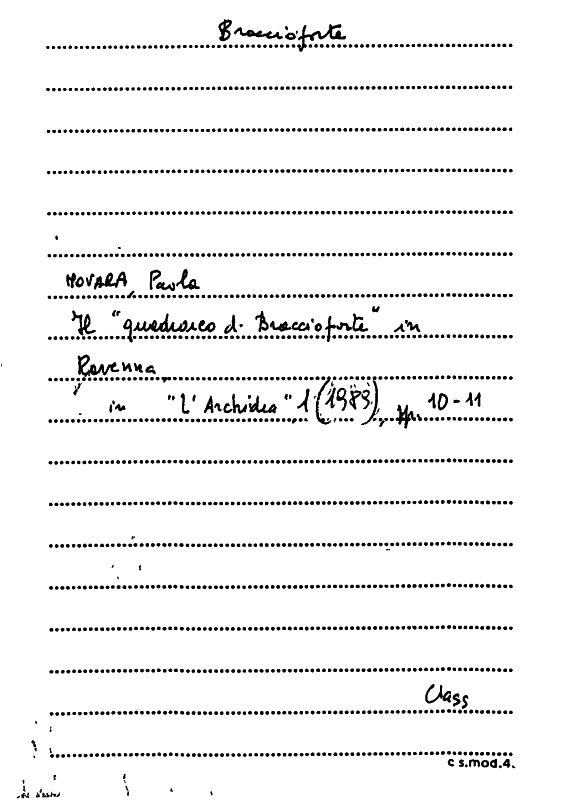 Braccioforte
NOVARA, Paola
Il "quadrarco d. Braccioforte" in
Ravenna,
in "L'Archidea", 1 (1989), pp. 10-11
Class
c s.mod.4.